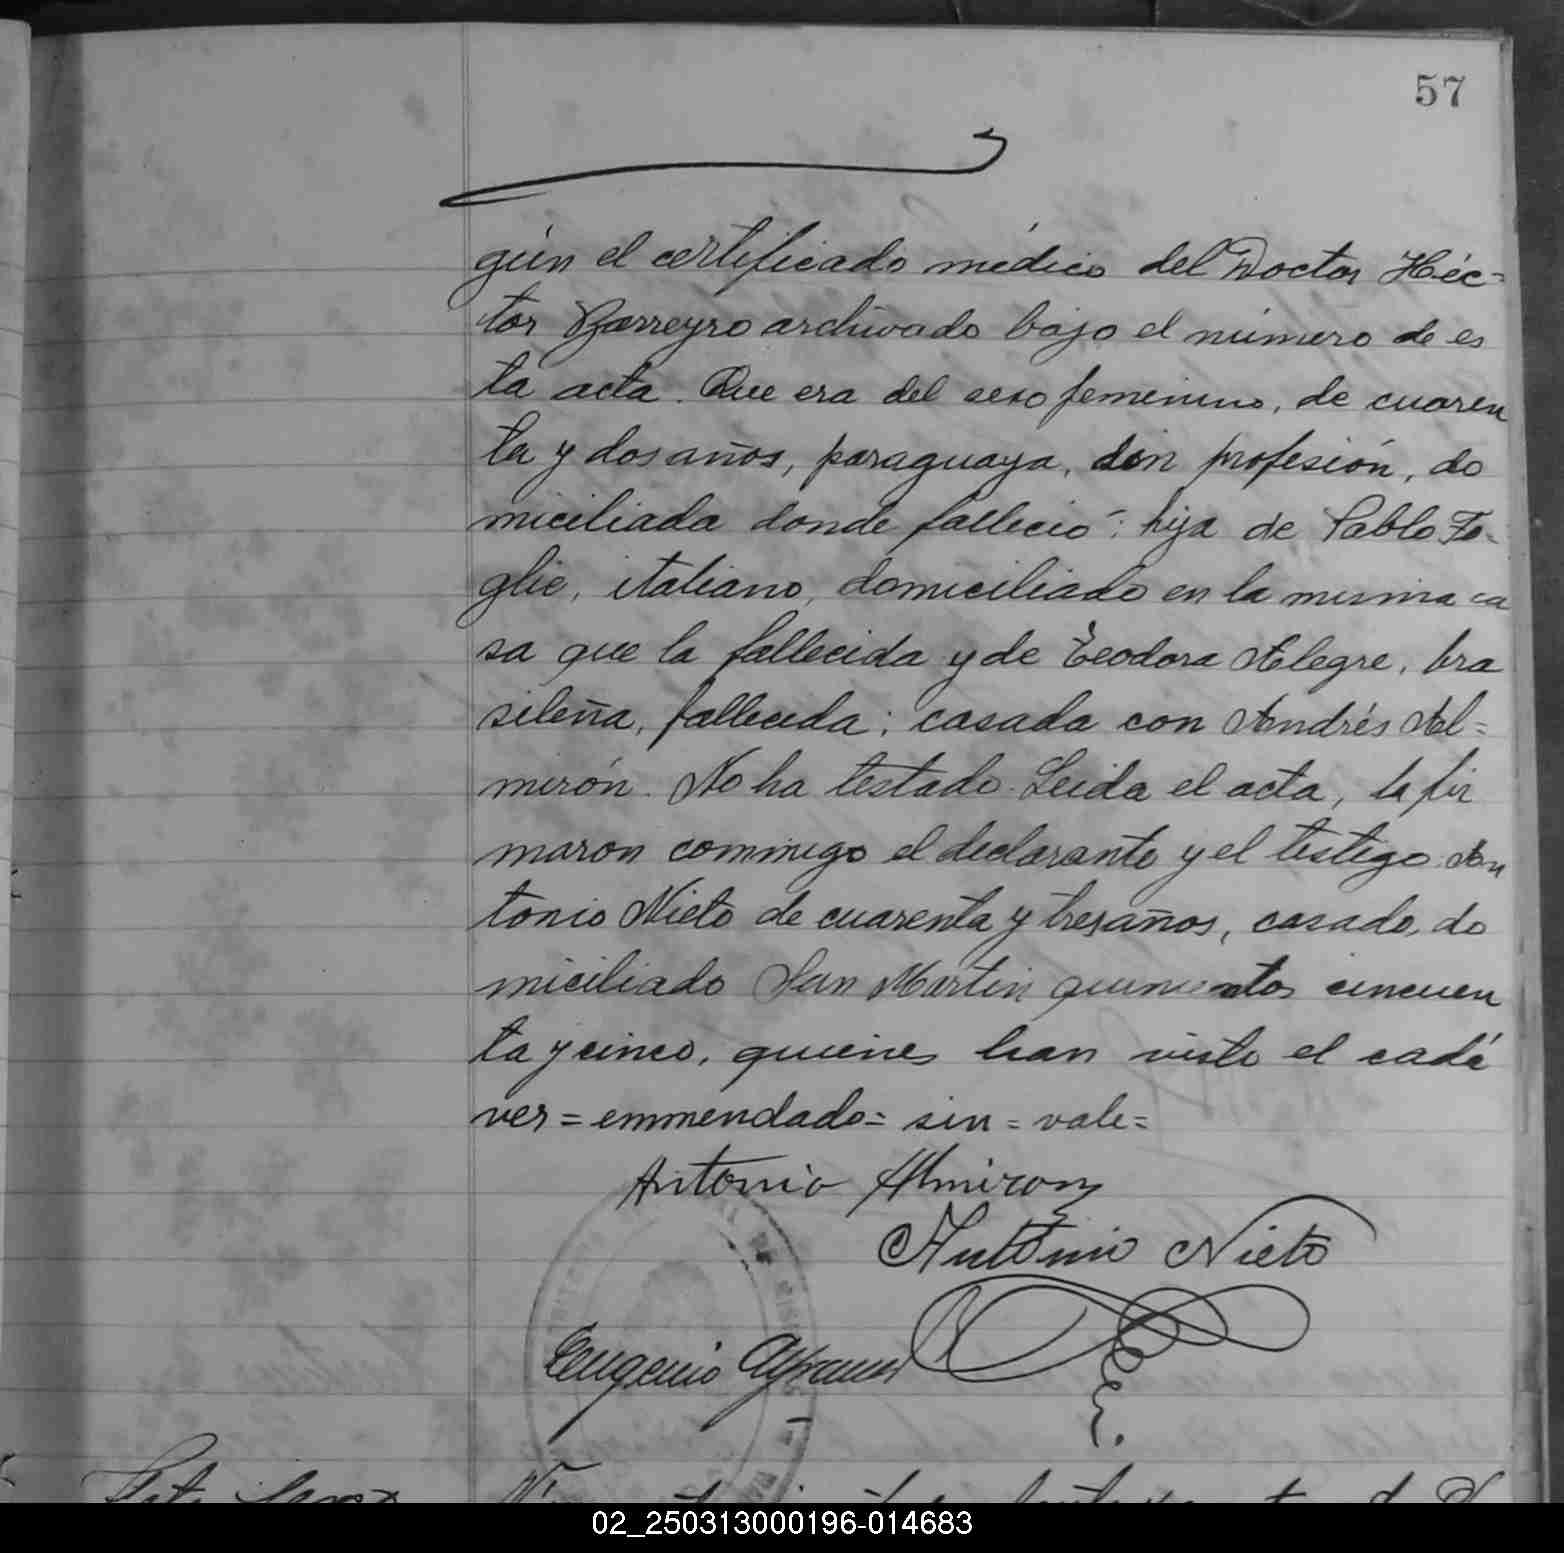 57
gún el certificado médico del Doctor Héc=
tor Barreyro archivado bajo el número de es
ta acta. Que era del sexo femenino, de cuaren
ta y dos años, paraguaya, sin profesión, do
miciliada donde falleció; hija de Pablo Fo-
glie, italiano, domiciliado en la misma ca
sa que la fallecida y de Teodora Alegre, bra
sileña, fallecida; casada con Andrés Al=
mirón. No ha testado. Leida el acta, la fir
maron conmigo el declarante y el testigo An
tonio Nieto de cuarenta y tres años, casado, do
miciliado San Martin quinientos cincuen
ta y cinco, quienes han visto el cadá
ver = emmendado = sin = vale =
Antonio Almiron
Antonio Nieto
Eugenio
02_250313000196-014683